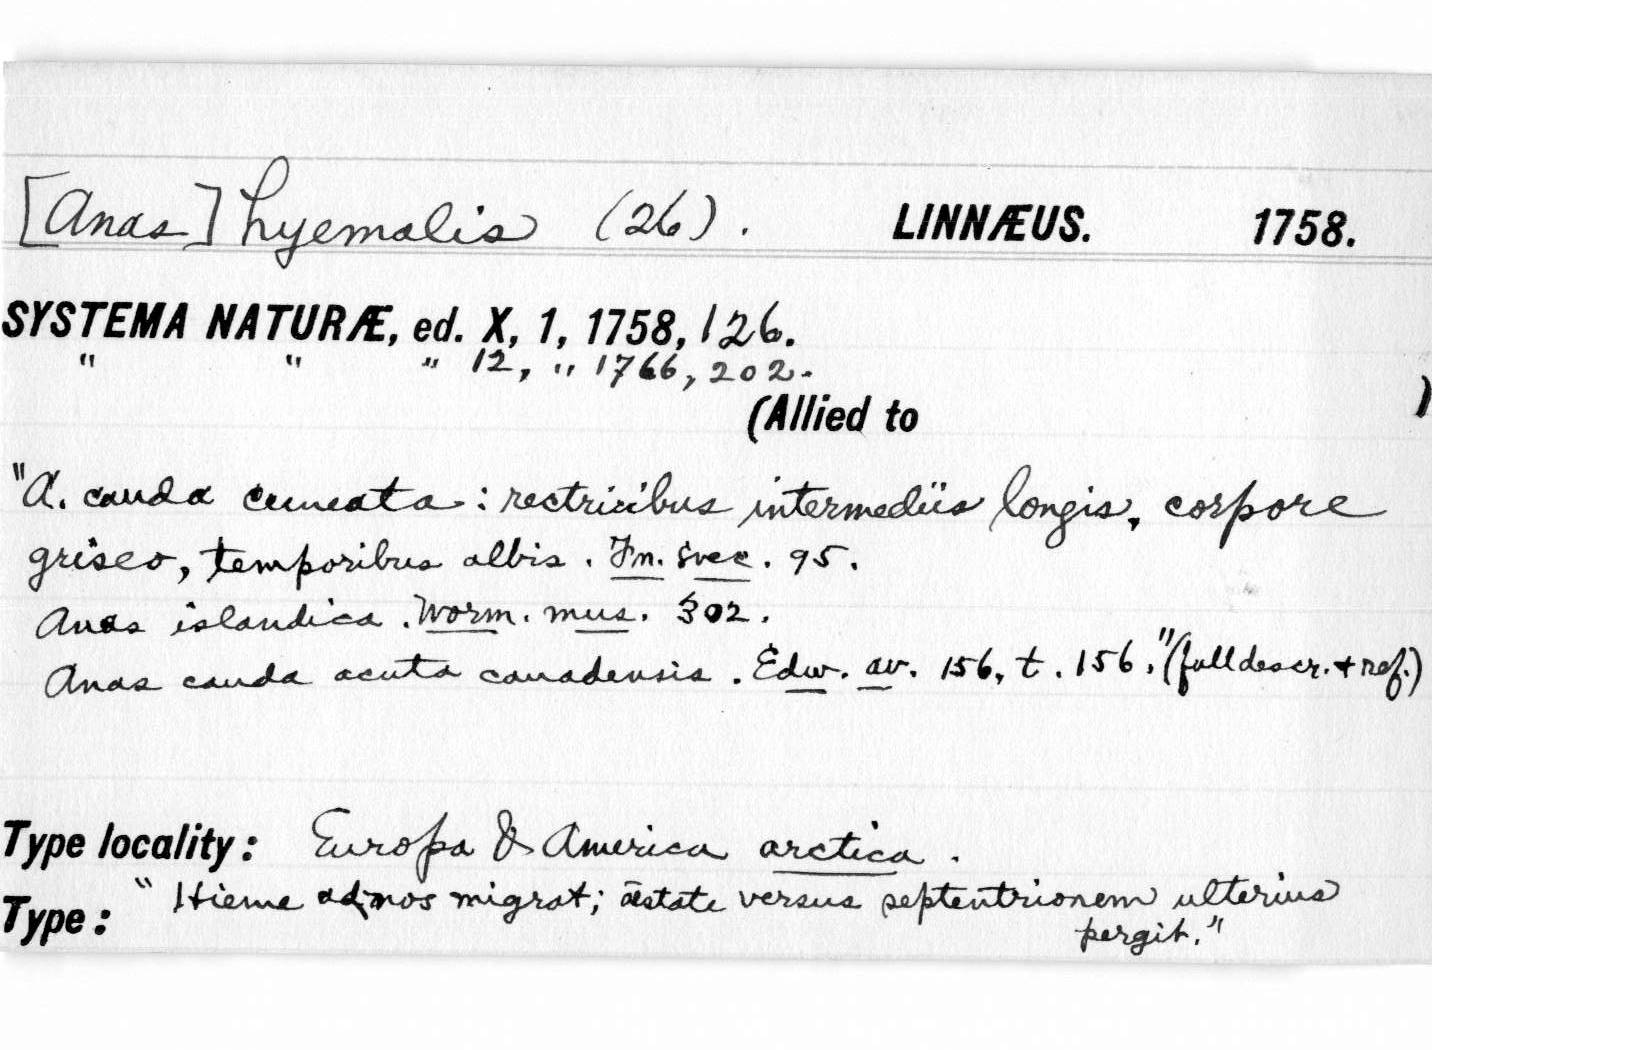 [Anas] hyemalis (26). LINNÆUS. 1758.
SYSTEMA NATURÆ, ed. X, 1, 1758, 126.
" " " 12, " 1766, 202.
(Allied to )
"A. cauda cuneata: rectricibus intermediis longis, corpore
griseo, temporibus albis. Fn. svec. 95.
Anas islandica. Worm. mus. 302.
Anas cauda acuta canadensis. Edw. av. 156, t. 156." (full descr. + ref.)
Type locality: Europa & America arctica.
"Hieme ad nos migrat; æstate versus septentrionem ulterius
Type: pergit."